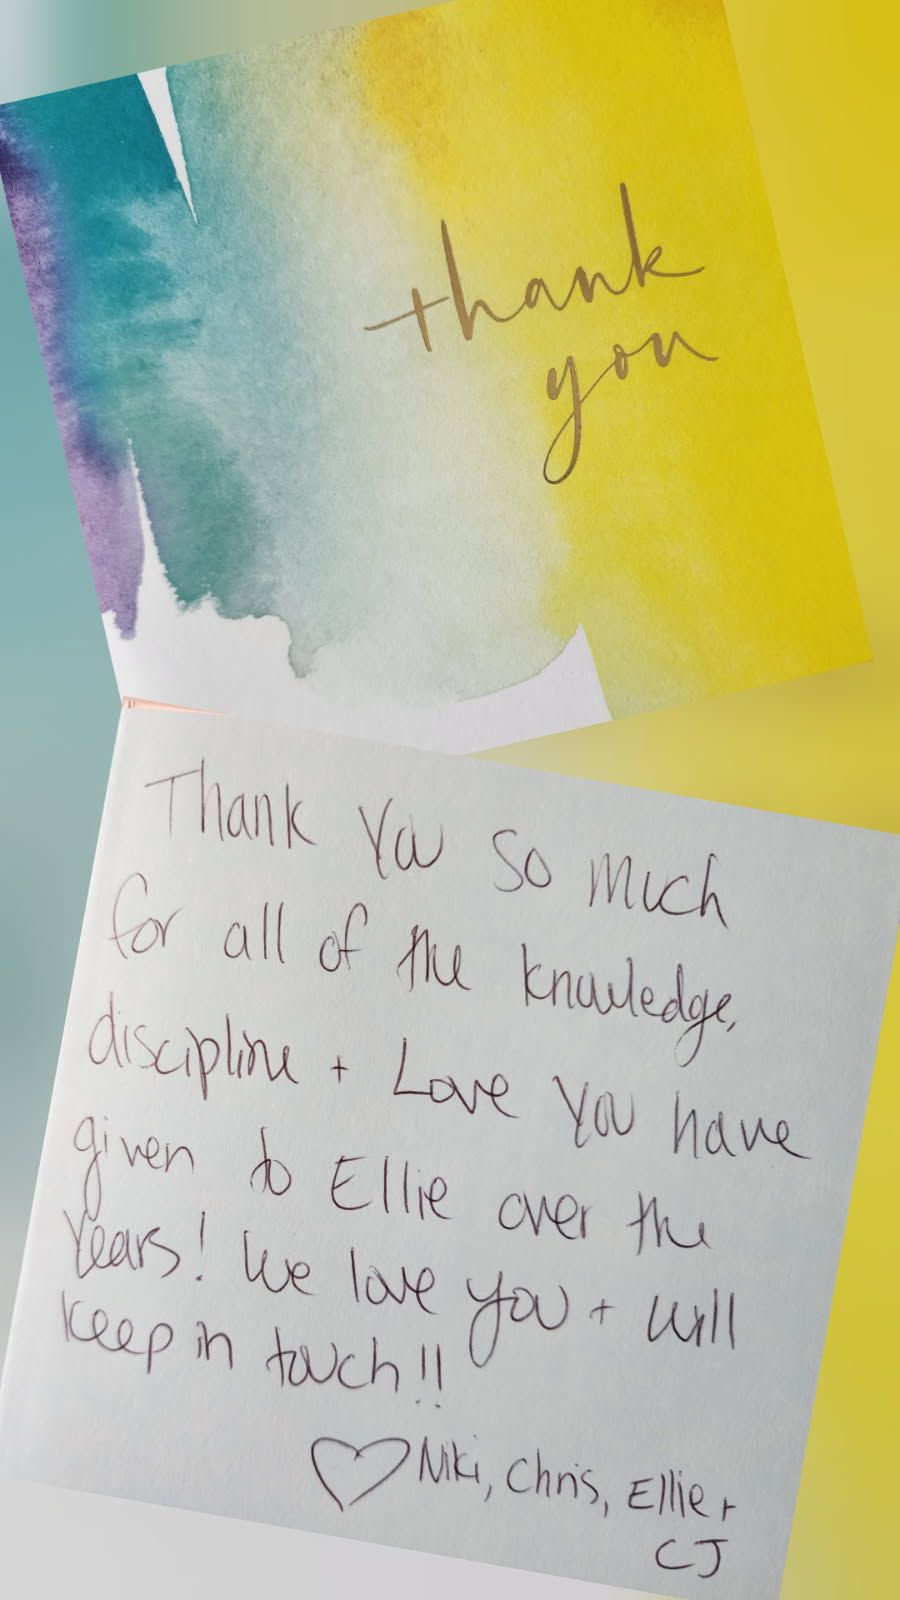 thank
you
Thank You so much
for all of the knowledge,
discipline + Love You have
given to Ellie over the
Years! We love you + will
keep in touch!!
♡ Niki, Chris, Ellie +
CJ